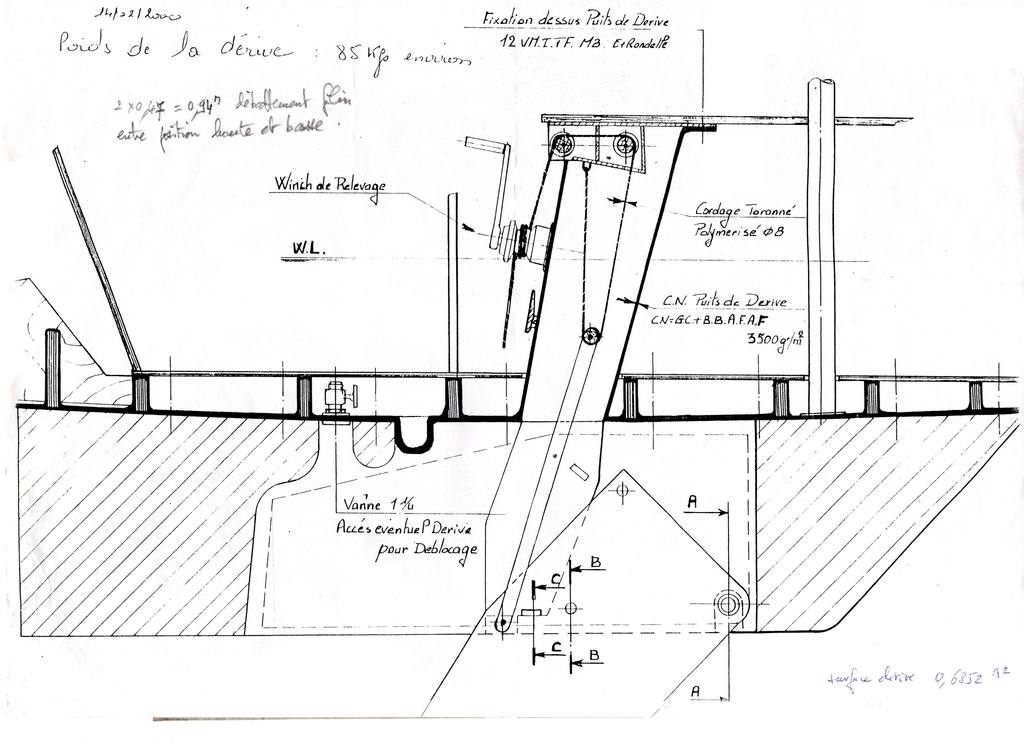 14/02/2000
Poids de la dérive : 85 Kgs environ
2 x 0,47 = 0,94 m débattement filin
entre position haute et basse.
Fixation dessus Puits de Derive
12 VM.T.TF. M8. Et Rondelle
Winch de Relevage
W.L.
Cordage Toronné
Polymerisé Ø8
C.N. Puits de Derive
CN=G.C.+B.B.A.F.A.F
3500gr/m²
Vanne 1"1/4
Accés eventuel Derive
pour Deblocage
A
B
C
C
B
A
surface dérive 0,6852 m²